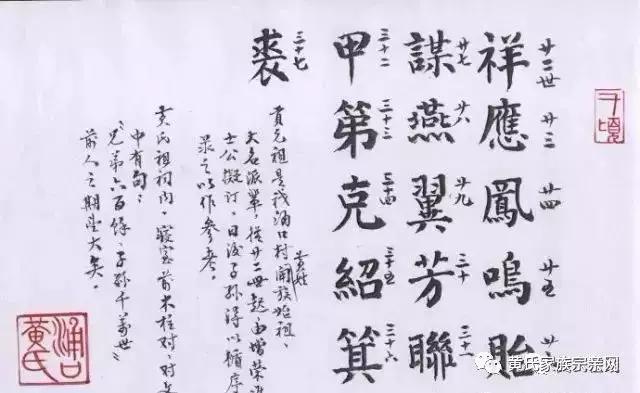 千頃
祥應鳳鳴貽
廿二世 廿三 廿四 廿五 廿六
謀燕翼芳聯
廿七 廿八 廿九 三十 三十一
甲第克紹箕
三十二 三十三 三十四 三十五 三十六
裘
三十七
黃姓
貢元祖是我涌口村開族始祖、
大名派單,從廿二世起由增榮進
士公擬订,日後子孫得以循序
录之以作參考。
黃氏祖祠内,寝室前木柱对,对文
中有句:
“兄弟六百餘,子孫千萬世”
前人之期望大矣。
涌口黃氏
黄氏家族宗亲网